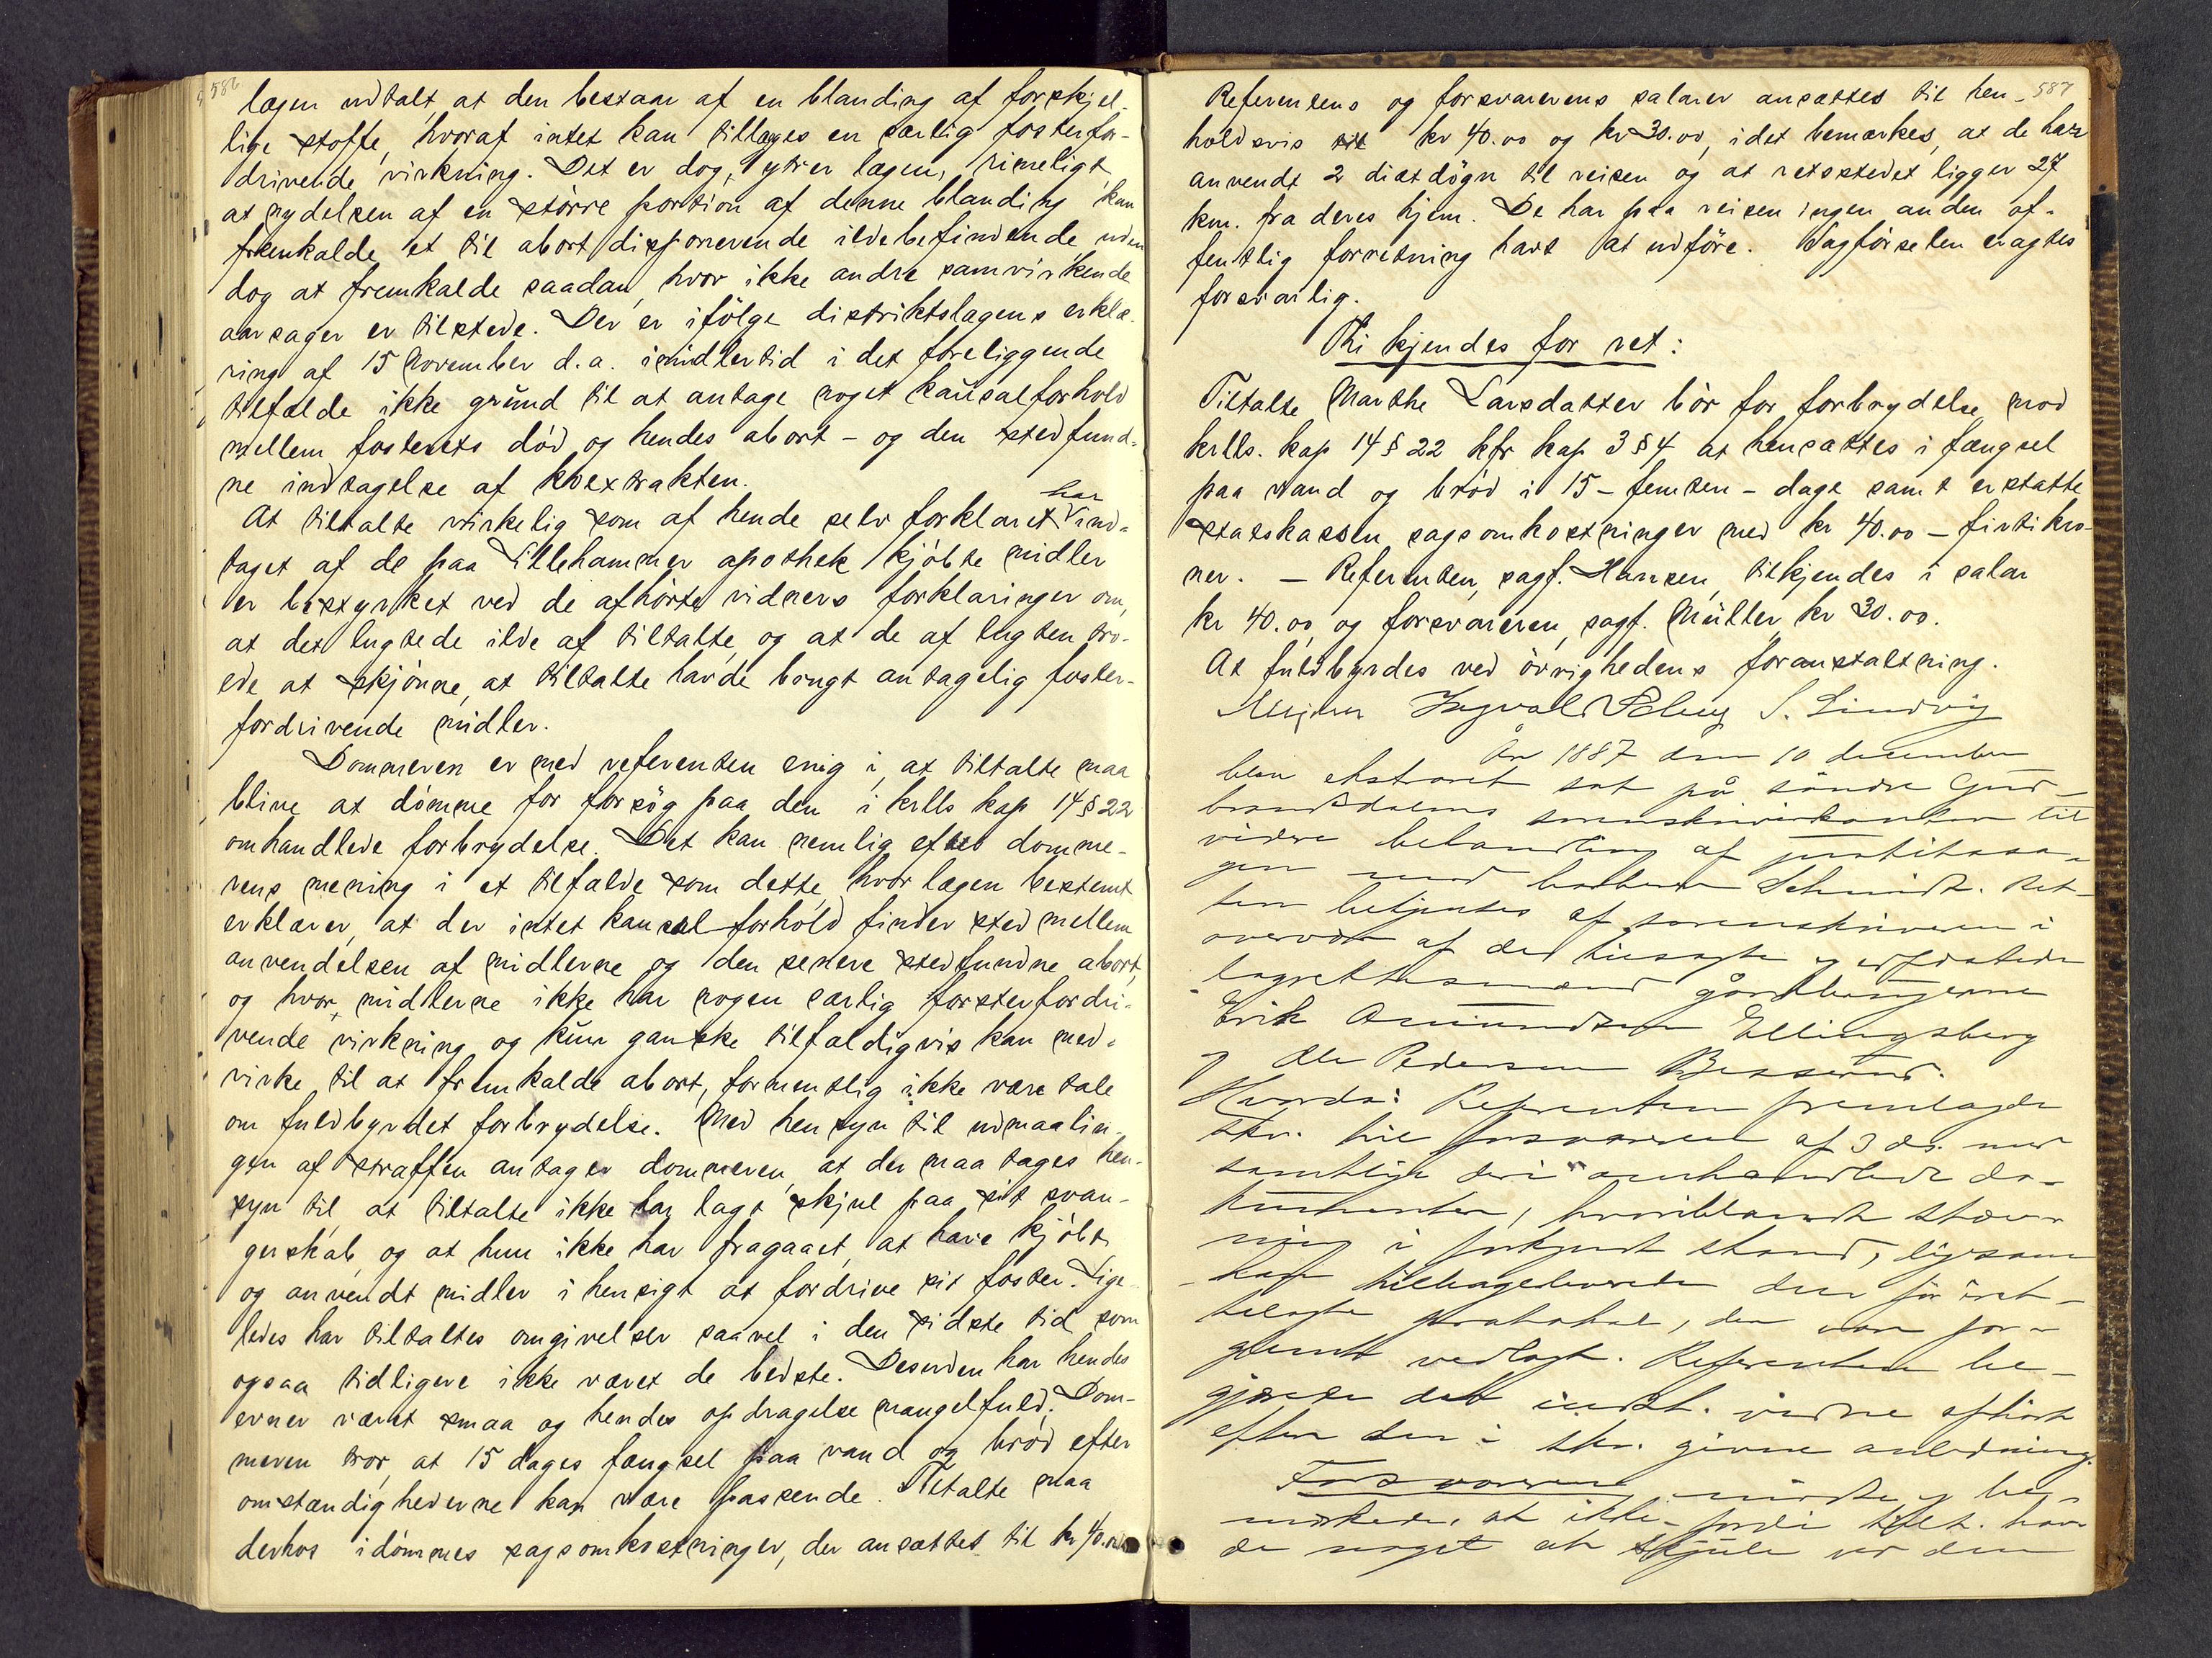 586
lægen udtalt, at den bestaar af en blanding af forskjel-
lige stoffe, hvoraf intet kan tillægges en særlig fosterfor-
drivende virkning. Det er dog, ytrer lægen, rimeligt,
at nydelsen af en større portion af denne blanding kan
fremkalde et til abort disponerende ildebefindende uden
dog at fremkalde saadan, hvor ikke andre samvirkende
aarsager er tilstede. Der er ifölge distriktslægens erklæ-
ring af 15 November d.a. imidlertid i det foreliggende
tilfælde ikke grund til at antage noget kausalforhold
mellem fosterets död og hendes abort - og den stedfund-
ne indtagelse af
At tiltalte virkelig som af hende selv forklaret har ind-
taget af de paa Lillehammer apothek kjöbte midler
er bestyrket ved de afhörte vidners forklaringer om,
at det lugtede ilde af tiltalte, og at de af lugten tro-
ede at skjönne, at tiltalte havde brugt antagelig foster-
fordrivende midler.
Dommeren er med referenten enig i, at tiltalte maa
blive at dömme for forsög paa den i krlls kap 14 § 22
omhandlede forbrydelse. Det kan nemlig efter domme-
rens mening i et tilfælde som dette, hvor lægen bestemt
erklærer, at der intet kausalforhold finder sted mellem
anvendelsen af midlerne og den senere stedfundne abort,
og hvor midlerne ikke har nogen særlig fosterfordri-
vende virkning og kun ganske tilfældigvis kan med-
virke til at fremkalde abort, formentlig ikke være tale
om fuldbyrdet forbrydelse. Med hensyn til udmaalin-
gen af straffen antager dommeren, at der maa tages hen-
syn til, at tiltalte ikke har lagt skjul paa sit svan-
gerskab, og at hun ikke har fragaaet, at have kjöbt
og anvendt midler i hensigt at fordrive sit foster. Lige-
ledes har tiltaltes omgivelser saavel i den sidste tid som
ogsaa tidligere ikke været de bedste. Desuden har hendes
evner været smaa og hendes opdragelse mangelfuld. Dom-
meren tror, at 15 dages fængsel paa vand og bröd efter
omstændighederne kan være passende. Tiltalte maa
derhos idömmes sagsomkostninger, der ansættes til kr 40.00
587
Referentens og forsvarerens salarer ansættes til hen-
holdsvis kr 40.00 og kr 30.00, idet bemærkes, at de har
anvendt 2 diætdögn til reisen og at retsstedet ligger 27
km. fra deres hjem. De har paa reisen ingen anden of-
fentlig forretning havt at udföre. Sagförselen eragtes
forsvarlig.
Thi kjendes for ret:
Tiltalte Marthe Larsdatter bör for forbrydelse mod
krlls. kap 14 § 22 kfr kap 3 § 4 at hensættes i fængsel
paa vand og bröd i 15 - femten - dage samt erstatte
statskassen sagsomkostninger med kr 40.00 - firti kro-
ner. - Referenten, sagf. Hansen, tilkjendes i salar
kr 40.00 og forsvareren, sagf. Müller, kr 30.00.
At fuldbyrdes ved övrighedens foranstaltning.
Ingvald S. Lindvig
År 1887 den 10 december
blev ekstraret sat på söndre Gud-
brandsdalens sorenskriverkontor til
videre behandling af justitssa-
gen mod Schmidt. Ret-
ten betjentes af sorenskriveren i
overvær af de tilsagte og edfæstede
lagrettesmænd gårdbrugerne
Erik Amundsen Ellingsberg
og Ole Pedersen
Hvorda: Referenten fremlagde
skr. til forsvareren af 3 ds. med
samtlige deri omhandlede do-
kumenter, hvoriblandt stæv-
ning i forkyndt stand, ligesom
han tilbageleverede den för
protokol, der var for-
glemt vedlagt. Referenten be-
gjærede det indst. vidne afhört
efter den i skr. givne anledning.
Forsvareren mödte og be-
mærkede, at ikke fordi tilt. hav-
de noget at skjule ved den